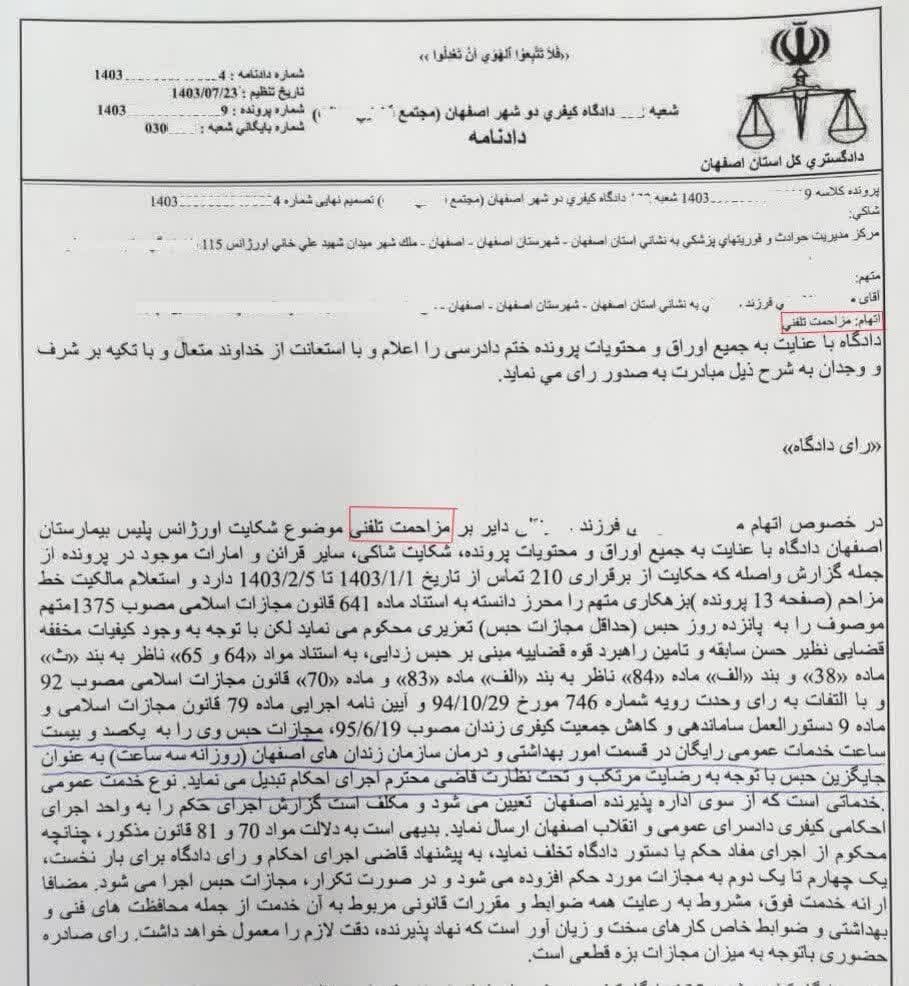 «فَلاَ تَتَّبِعُوا الْهَوَي أَنْ تَعْدِلُوا»
شماره دادنامه : 1403 4
تاریخ تنظیم : 1403/07/23
شماره پرونده : 1403 9
شماره بایگاني شعبه : 030
شعبه دادگاه کیفري دو شهر اصفهان (مجتمع )
دادنامه
دادگستري کل استان اصفهان
پرونده کلاسه 1403 9 شعبه دادگاه کیفري دو شهر اصفهان (مجتمع ) تصمیم نهایی شماره 1403 4
شاکي:
مرکز مدیریت حوادث و فوریتهاي پزشکي به نشاني استان اصفهان - شهرستان اصفهان - اصفهان - ملك شهر میدان شهید علي خاني اورژانس 115
متهم:
آقای فرزند به نشاني استان اصفهان - شهرستان اصفهان - اصفهان -
اتهام: مزاحمت تلفني
دادگاه با عنایت به جمیع اوراق و محتویات پرونده ختم دادرسی را اعلام و با استعانت از خداوند متعال و با تکیه بر شرف
و وجدان به شرح ذیل مبادرت به صدور رای مي نماید.
«رای دادگاه»
در خصوص اتهام فرزند دایر بر مزاحمت تلفنی موضوع شکایت اورژانس پلیس بیمارستان
اصفهان دادگاه با عنایت به جمیع اوراق و محتویات پرونده، شکایت شاکی، سایر قرائن و امارات موجود در پرونده از
جمله گزارش واصله که حکایت از برقراری 210 تماس از تاریخ 1403/1/1 تا 1403/2/5 دارد و استعلام مالکیت خط
مزاحم (صفحه 13 پرونده )بزهکاری متهم را محرز دانسته به استناد ماده 641 قانون مجازات اسلامی مصوب 1375متهم
موصوف را به پانزده روز حبس (حداقل مجازات حبس) تعزیری محکوم می نماید لکن با توجه به وجود کیفیات مخففه
قضایی نظیر حسن سابقه و تامین راهبرد قوه قضاییه مبنی بر حبس زدایی، به استناد مواد «64 و 65» ناظر به بند «ث»
ماده «38» و بند «الف» ماده «84» ناظر به بند «الف» ماده «83» و ماده «70» قانون مجازات اسلامی مصوب 92
و با التفات به رای وحدت رویه شماره 746 مورخ 94/10/29 و آیین نامه اجرایی ماده 79 قانون مجازات اسلامی و
ماده 9 دستورالعمل ساماندهی و کاهش جمعیت کیفری زندان مصوب 95/6/19، مجازات حبس وی را به یکصد و بیست
ساعت خدمات عمومی رایگان در قسمت امور بهداشتی و درمان سازمان زندان های اصفهان (روزانه سه ساعت) به عنوان
جایگزین حبس با توجه به رضایت مرتکب و تحت نظارت قاضی محترم اجرای احکام تبدیل می نماید. نوع خدمت عمومی
.خدماتی است که از سوی اداره پذیرنده اصفهان تعیین می شود و مکلف است گزارش اجرای حکم را به واحد اجرای
احکامی کیفری دادسرای عمومی و انقلاب اصفهان ارسال نماید. بدیهی است به دلالت مواد 70 و 81 قانون مذکور، چنانچه
محکوم از اجرای مفاد حکم یا دستور دادگاه تخلف نماید، به پیشنهاد قاضی اجرای احکام و رای دادگاه برای بار نخست،
یک چهارم تا یک دوم به مجازات مورد حکم افزوده می شود و در صورت تکرار، مجازات حبس اجرا می شود. مضافا
ارائه خدمت فوق، مشروط به رعایت همه ضوابط و مقررات قانونی مربوط به آن خدمت از جمله محافظت های فنی و
بهداشتی و ضوابط خاص کارهای سخت و زیان آور است که نهاد پذیرنده، دقت لازم را معمول خواهد داشت. رای صادره
حضوری باتوجه به میزان مجازات بزه قطعی است.